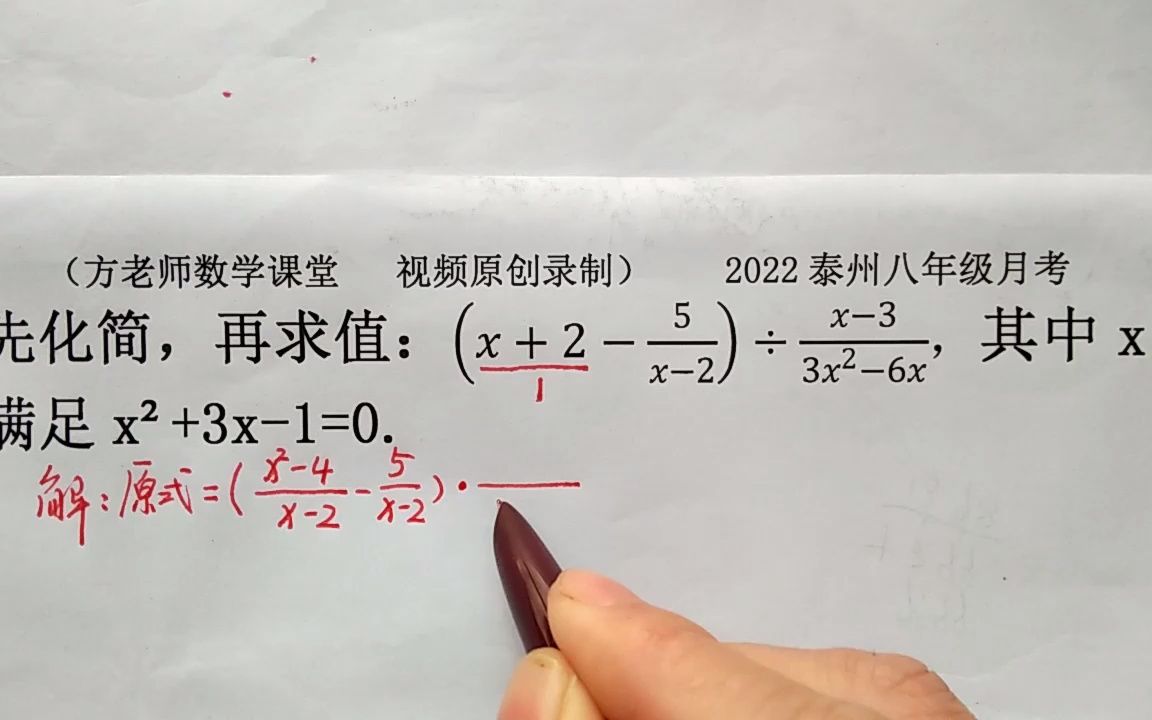 （方老师数学课堂 视频原创录制） 2022 泰州八年级月考
先化简，再求值：(x + 2 − 5/(x−2)) ÷ (x−3)/(3x²−6x)，其中 x
满足 x² +3x-1=0.
1
解：原式=( (x²-4)/(x-2) - 5/(x-2) )·